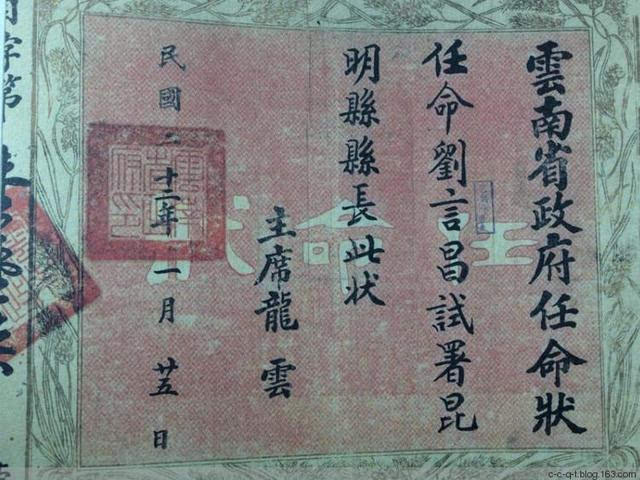 雲南省政府任命狀
任命劉言昌試署昆
明縣縣長此状
主席龍雲
民國二十二年一月廿五日
任命狀
字第
c-c-q-t.blog.163.com